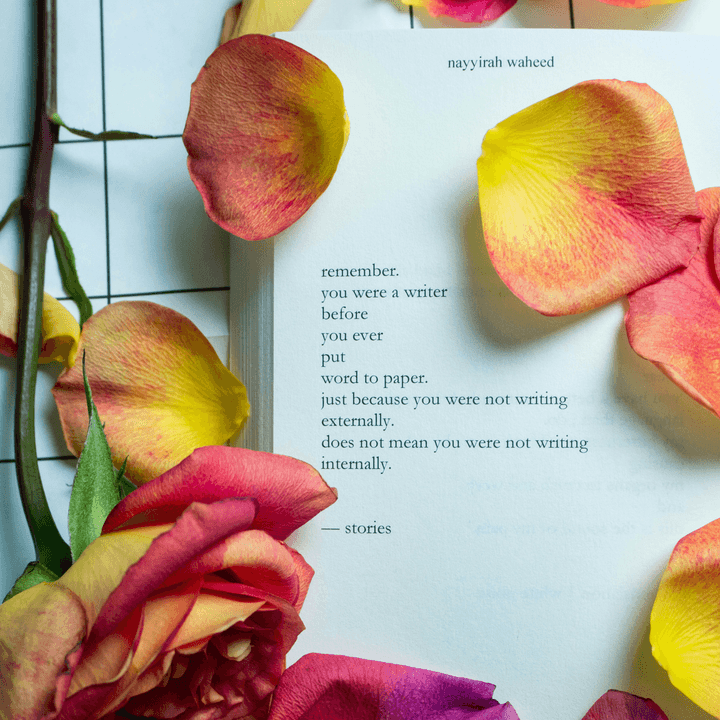 nayyirah waheed
remember.
you were a writer
before
you ever
put
word to paper.
just because you were not writing
externally.
does not mean you were not writing
internally.
— stories